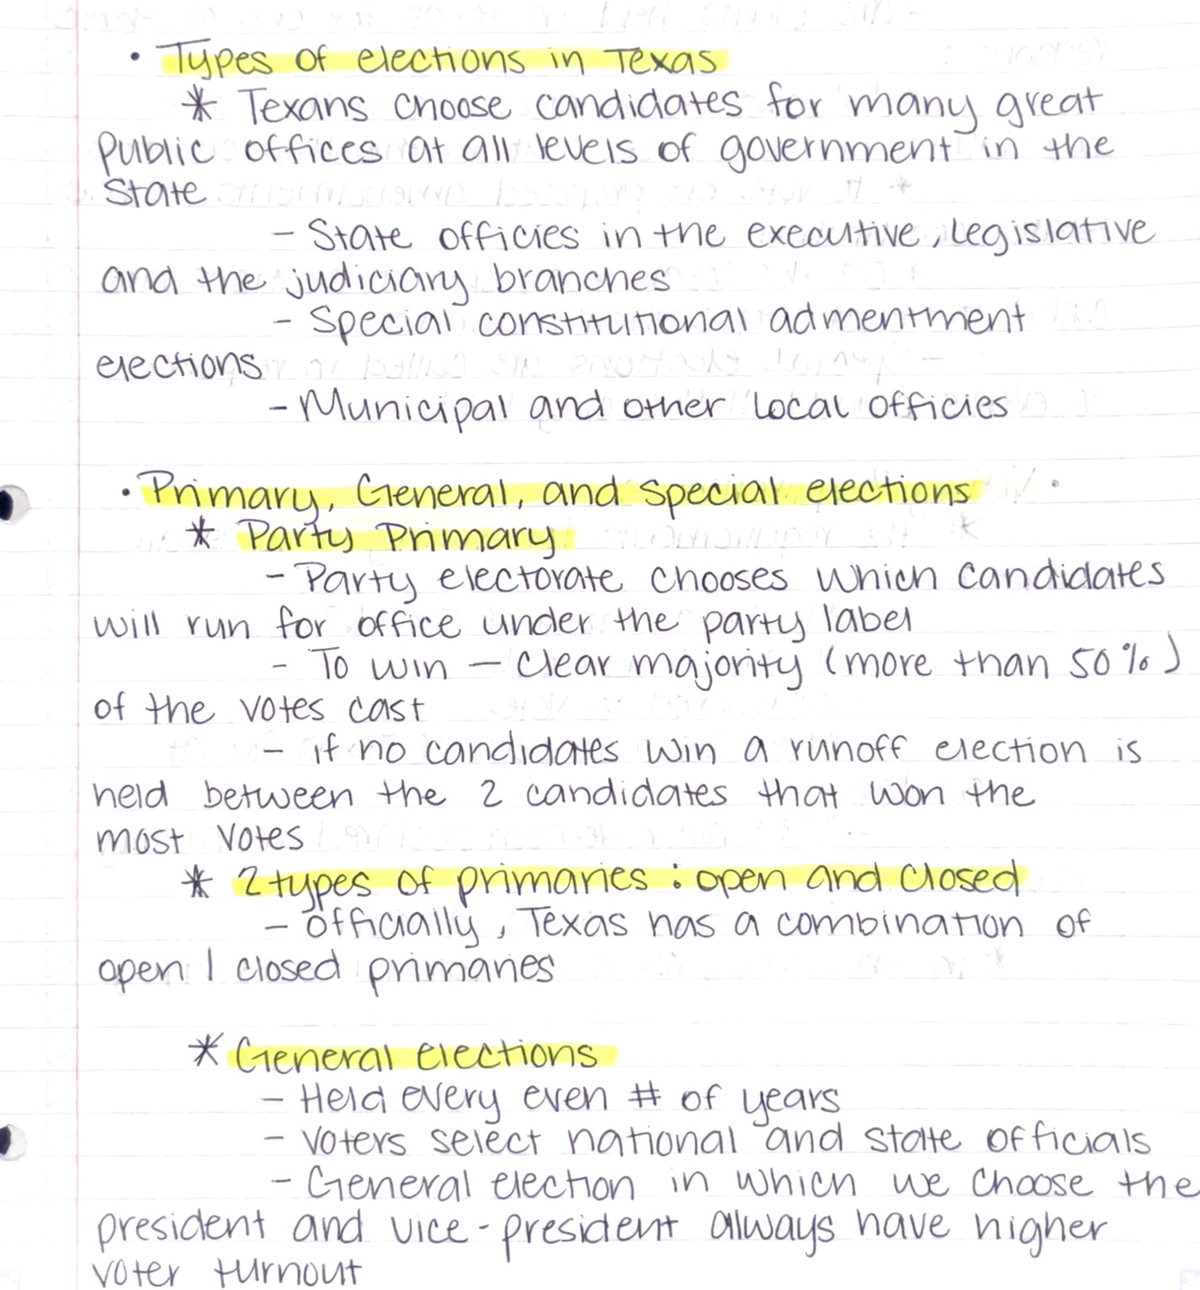 • Types of elections in Texas
* Texans choose candidates for many great
public offices at all levels of government in the
State
- State officies in the executive, legislative
and the judiciary branches
- Special constitutional admentment
elections
- Municipal and other local officies
• Primary, General, and special elections
* Party Primary
- Party electorate chooses which candidates
will run for office under the party label
- To win - clear majority (more than 50%)
of the votes cast
- if no candidates win a runoff election is
held between the 2 candidates that won the
most votes
* 2 types of primaries : open and closed
- officially, Texas has a combination of
open | closed primaries
* General elections
- Held every even # of years
- voters select national and state officials
- General election in which we choose the
president and vice-president always have higher
voter turnout